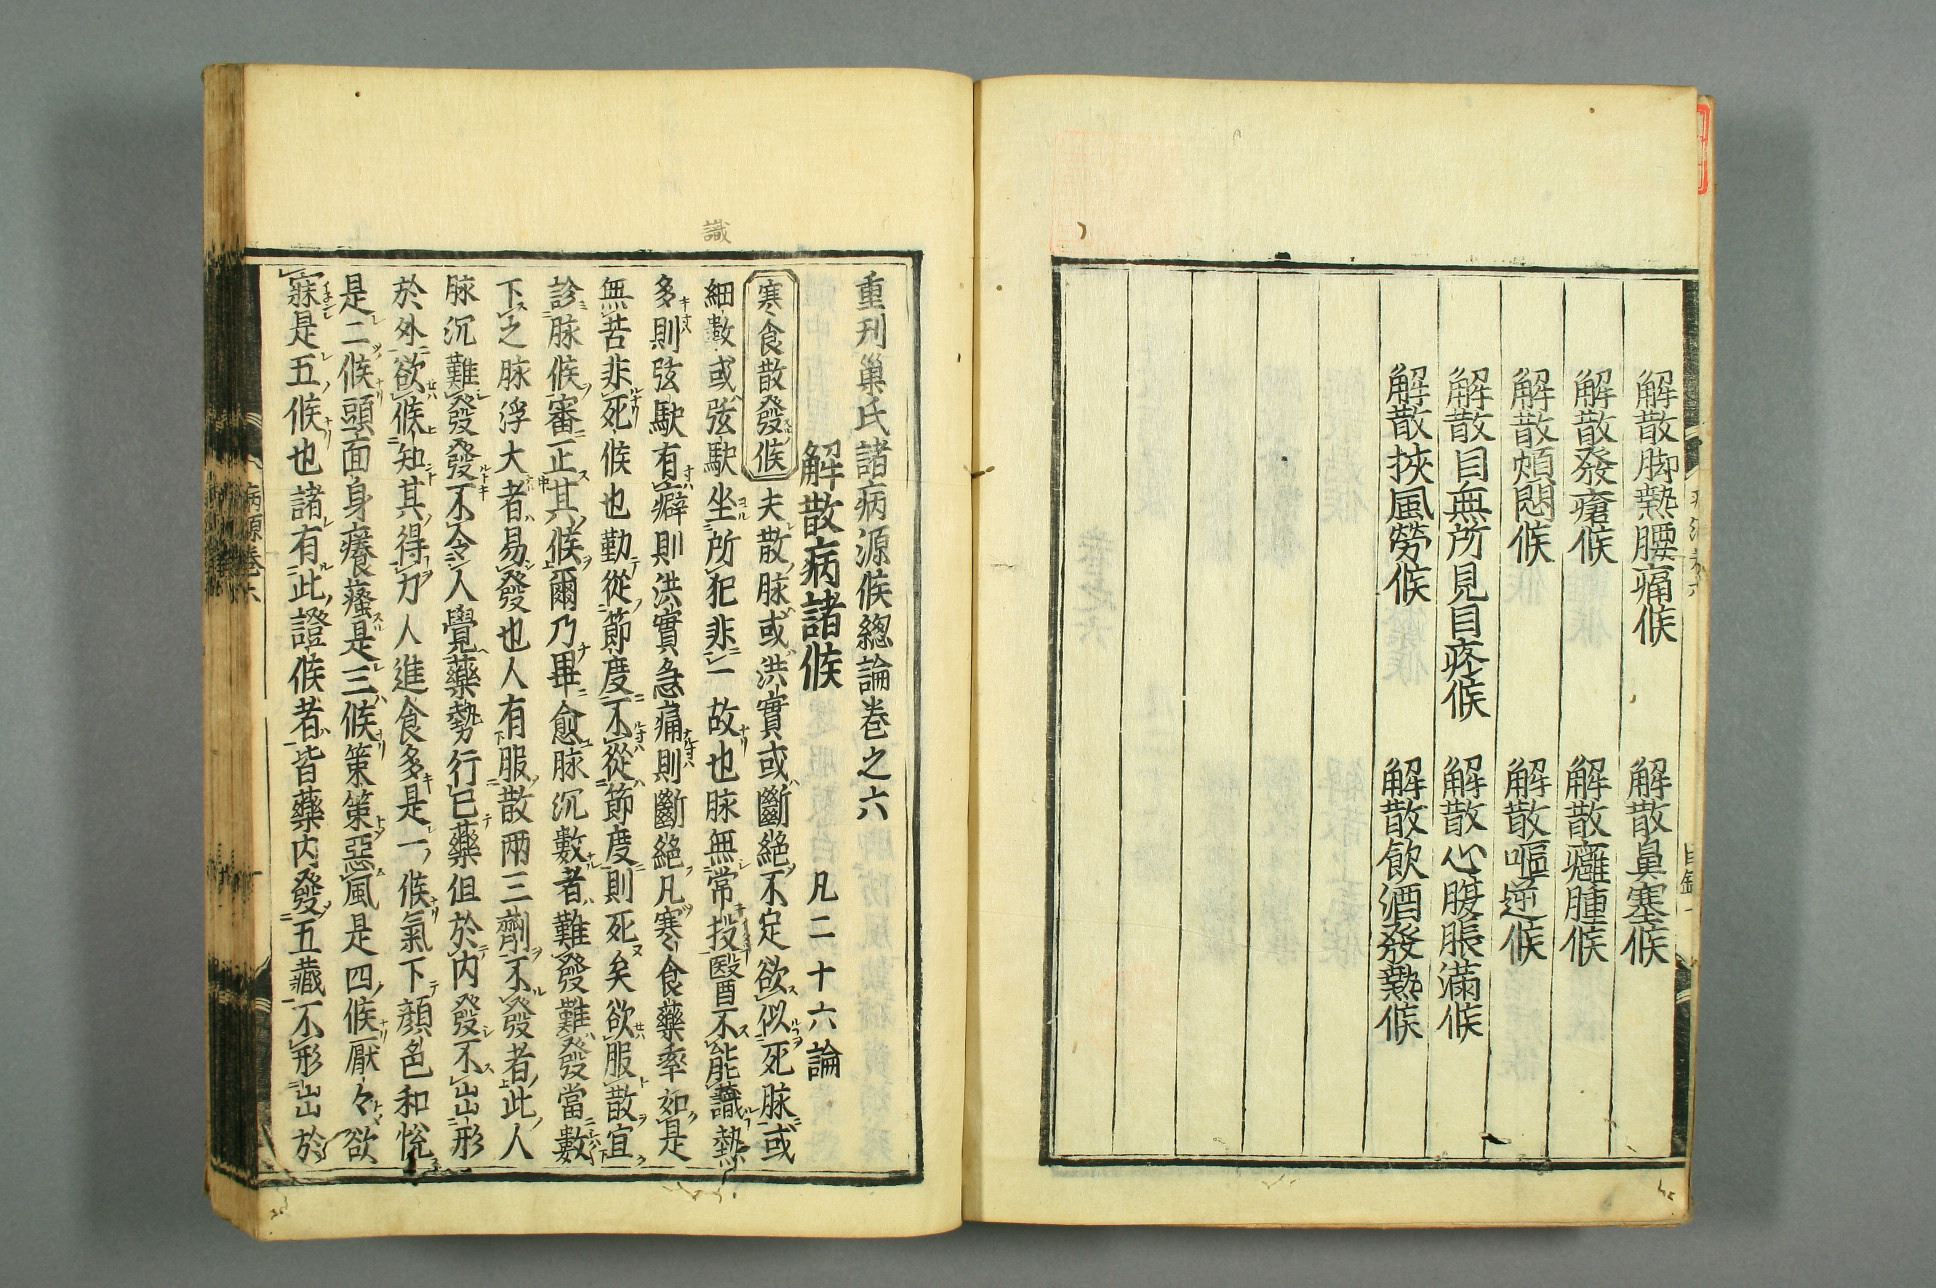 解散脚熱腰痛候　解散鼻塞候
解散發瘡候　解散癰腫候
解散煩悶候　解散嘔逆候
解散目無所見目疼候　解散心腹脹滿候
解散挾風勞候　解散飲酒發熱候
目録
重刊巢氏諸病源候總論卷之六
解散病諸候　凡二十六論
寒食散發候　夫散脉或洪實或斷絶不定欲似死脉或
識
細數或弦駃坐所犯非一故也脉無常投醫不能識熱
多則弦駃有癖則洪實急痛則斷絶凡寒食藥率如是
無苦非死候也勤從節度不從節度則死矣欲服散宜
診脉候審正其候爾乃畢愈脉沉數者難發難發當數
下之脉浮大者易發也人有服散兩三劑不發者此人
脉沉難發發不令人覺藥勢行已藥但於内發不出形
於外欲候知其得力人進食多是一候氣下顔色和悅
是二候頭面身癢瘙是三候策策惡風是四候厭々欲
寐是五候也諸有此證候者皆藥内發五藏不形出於
病源卷六